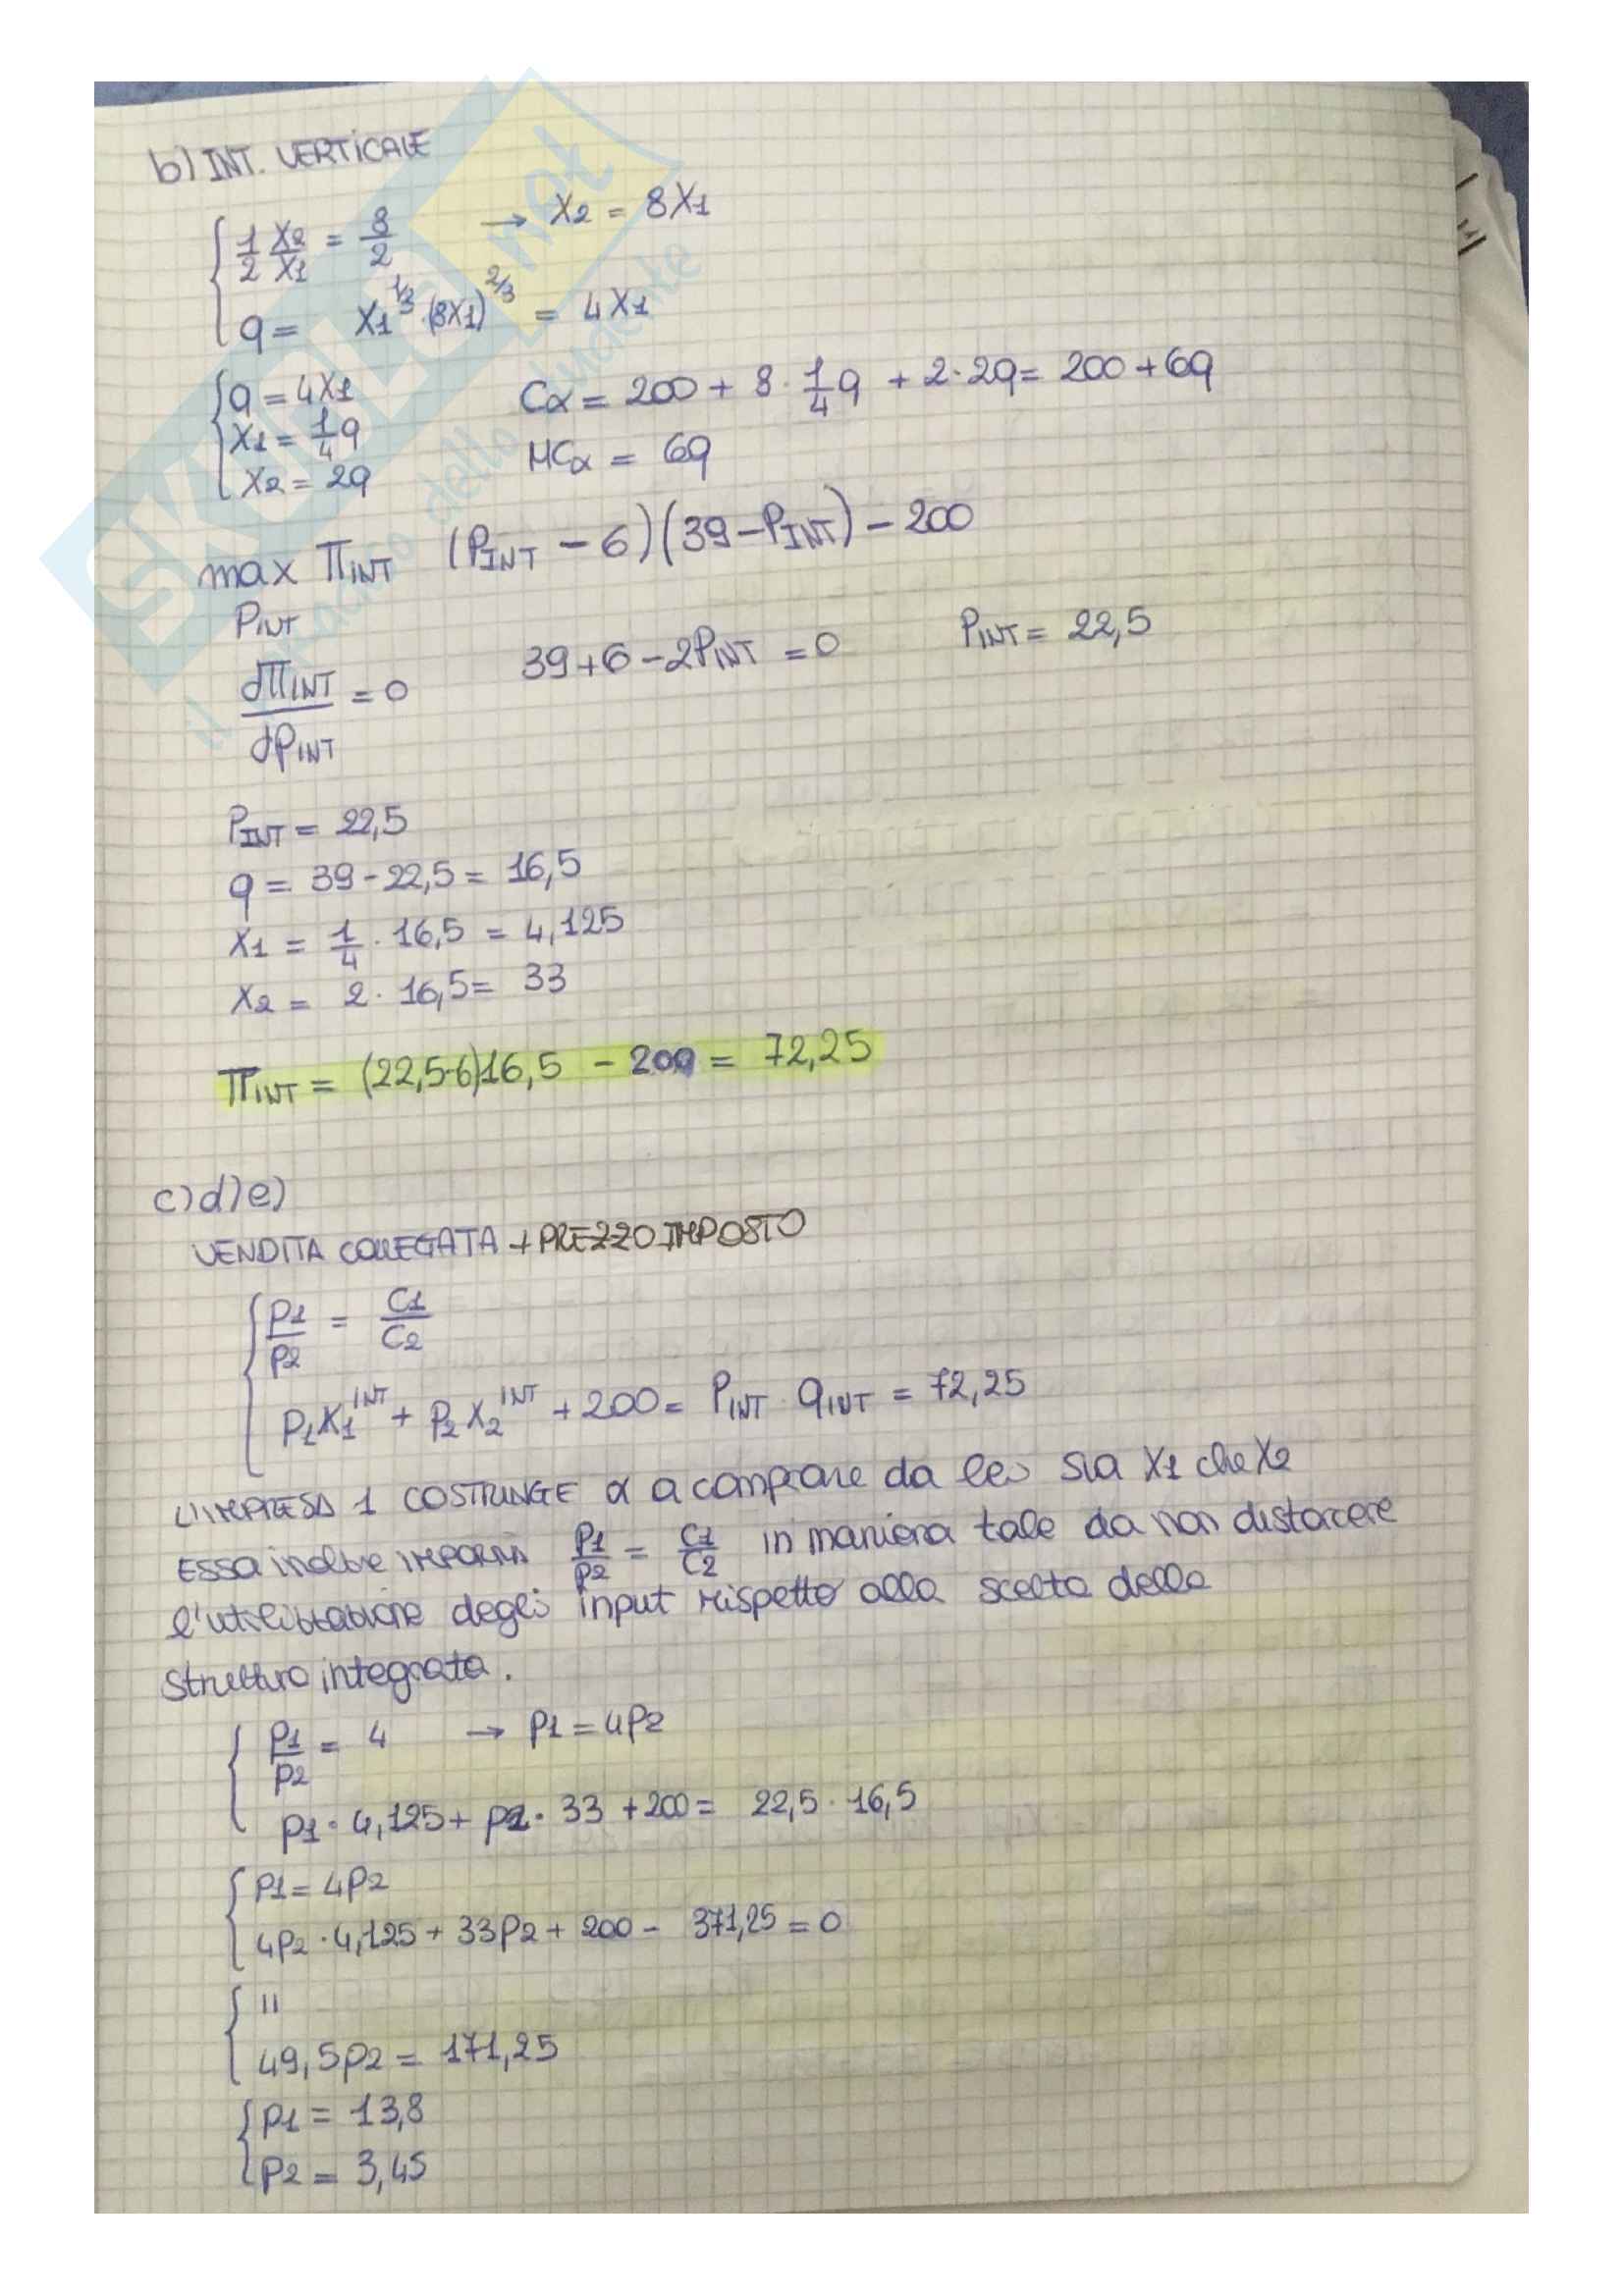 b) INT. VERTICALE
{ 1/2 X2/X1 = 8/2 → X2 = 8X1
q = X1^1/3 · (8X1)^2/3 = 4X1
{ q = 4X1
X1 = 1/4 q
X2 = 2q
Cα = 200 + 8 · 1/4 q + 2 · 2q = 200 + 6q
MCα = 6q
max ΠINT (PINT − 6)(39 − PINT) − 200
PINT
dΠINT/dPINT = 0 39 + 6 − 2PINT = 0 PINT = 22,5
PINT = 22,5
q = 39 − 22,5 = 16,5
X1 = 1/4 · 16,5 = 4,125
X2 = 2 · 16,5 = 33
ΠINT = (22,5-6)16,5 − 200 = 72,25
c) d) e)
VENDITA COLLEGATA + PREZZO IMPOSTO
{ P1/P2 = C1/C2
P1X1^INT + P2X2^INT + 200 = PINT · qINT = 72,25
L'IMPRESA 1 COSTRINGE α a comprare da lei sia X1 che X2
ESSA inoltre P1/P2 = C1/C2 in maniera tale da non distorcere
l'utilizzazione degli input rispetto alla scelta della
struttura integrata.
{ P1/P2 = 4 → P1 = 4P2
P1 · 4,125 + P2 · 33 + 200 = 22,5 · 16,5
{ P1 = 4P2
4P2 · 4,125 + 33P2 + 200 − 371,25 = 0
{ 11
49,5P2 = 171,25
{ P1 = 13,8
P2 = 3,45